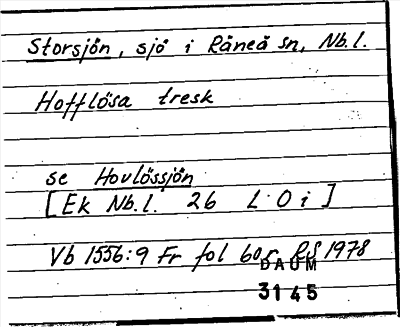 Storsjön, sjö i Råneå sn, Nb.l.
Hofflösa tresk
se Hovlössjön
[Ek Nb.l. 26 L O i]
Vb 1556:9 Fr fol 60r 1978
DAUM
3145